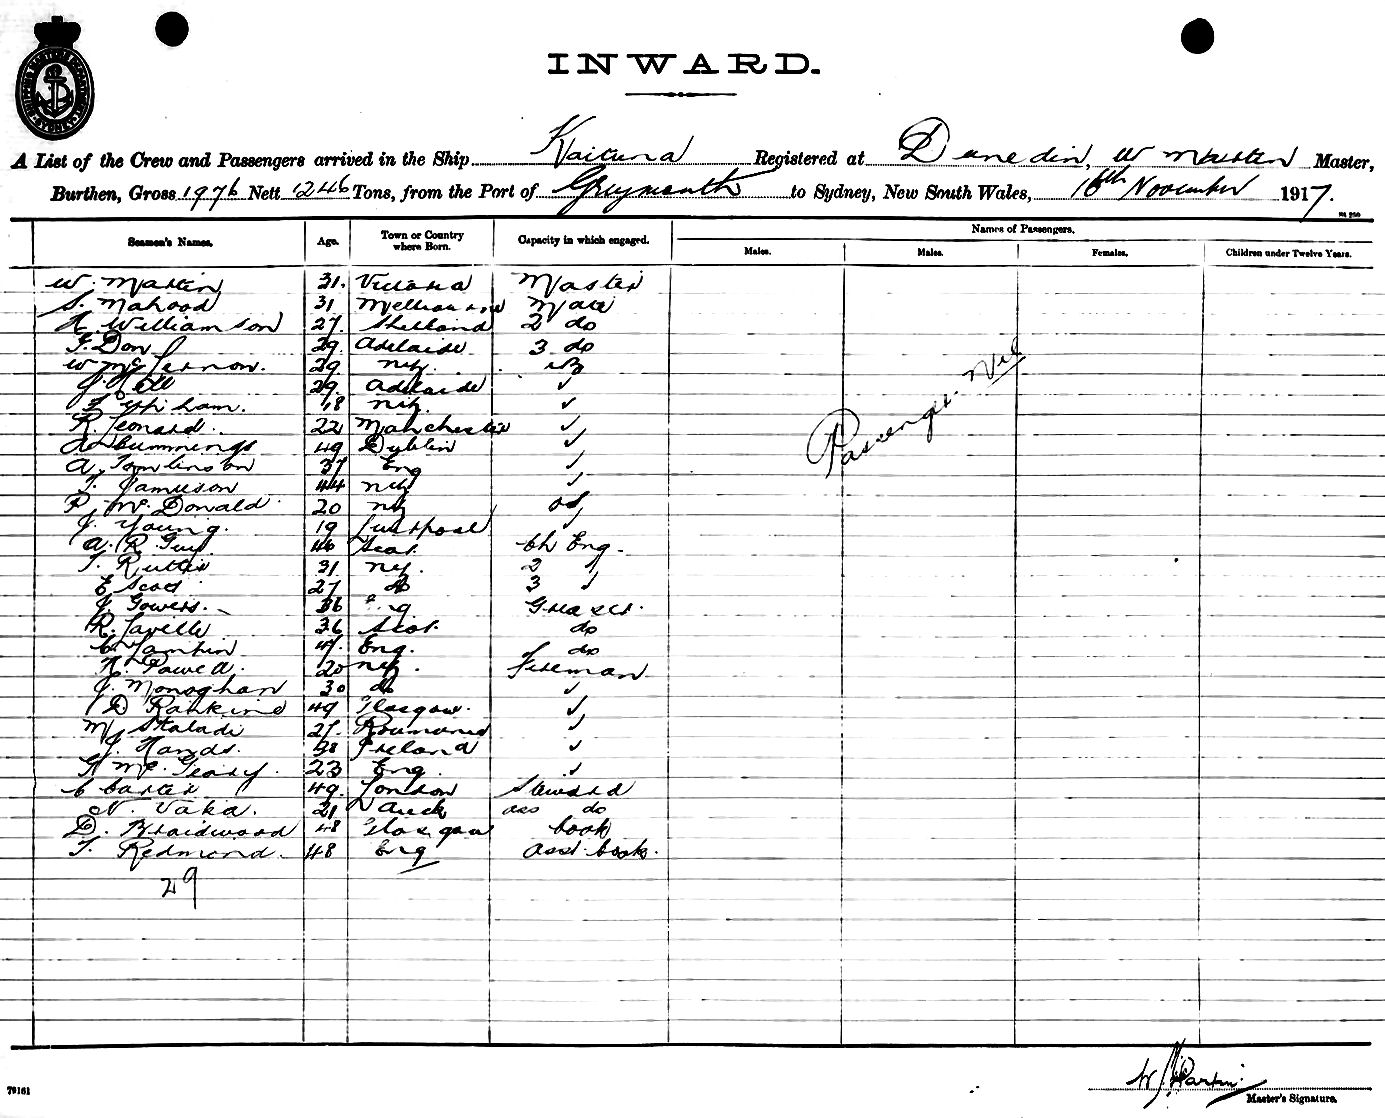 SHIPPING MASTERS DEPARTMENT SYDNEY
INWARD.
A List of the Crew and Passengers arrived in the Ship Kaituna Registered at Dunedin, W Martin Master,
Burthen, Gross 1976 Nett 1246 Tons, from the Port of Greymouth to Sydney, New South Wales, 16th November 1917.
Seamen's Names. Age. Town or Country where Born. Capacity in which engaged. Names of Passengers.
Males. Males. Females. Children under Twelve Years.
W. Martin 31. Victoria Master
S. Mahood 31 Melbourne Mate
Williamson 27. Shetland 2 do
Don 29. Adelaide 3 do
W Mc 29. NZ.
29. Adelaide ✓
18 NZ. ✓
R. Leonard. 22 Manchester ✓
A Cummings 49 Dublin ✓
A. Tomlinson 37 Eng ✓
T. Jamieson 44 NZ ✓
P. McDonald 20 NZ os
J. Young. 19 Liverpool ✓
A. R. Guy 46 Scot. Ch Eng.
T. Ruttis 31 NZ. 2 ✓
E Scott 27 do 3 ✓
J. Gowers. 36 Greaser.
R. Laville 36 Scot. do
C. Lambin 47. Eng. do
H. Powell. 20 NZ. Fireman
J. Monoghan 30 do ✓
D Rankine 49 Glasgow. ✓
M Skaladi 27. Roumania ✓
J. Hands. 38 Ireland ✓
Mc Geary. 23 Eng. ✓
C Carter 49. London Steward
N. Vaka. 21 Auck ass do
D. Braidwood 48 Glasgow Cook
T. Redmond. 48 Eng Asst. Cook.
29
Passengers Nil
79161
W J Martin
Master's Signature.